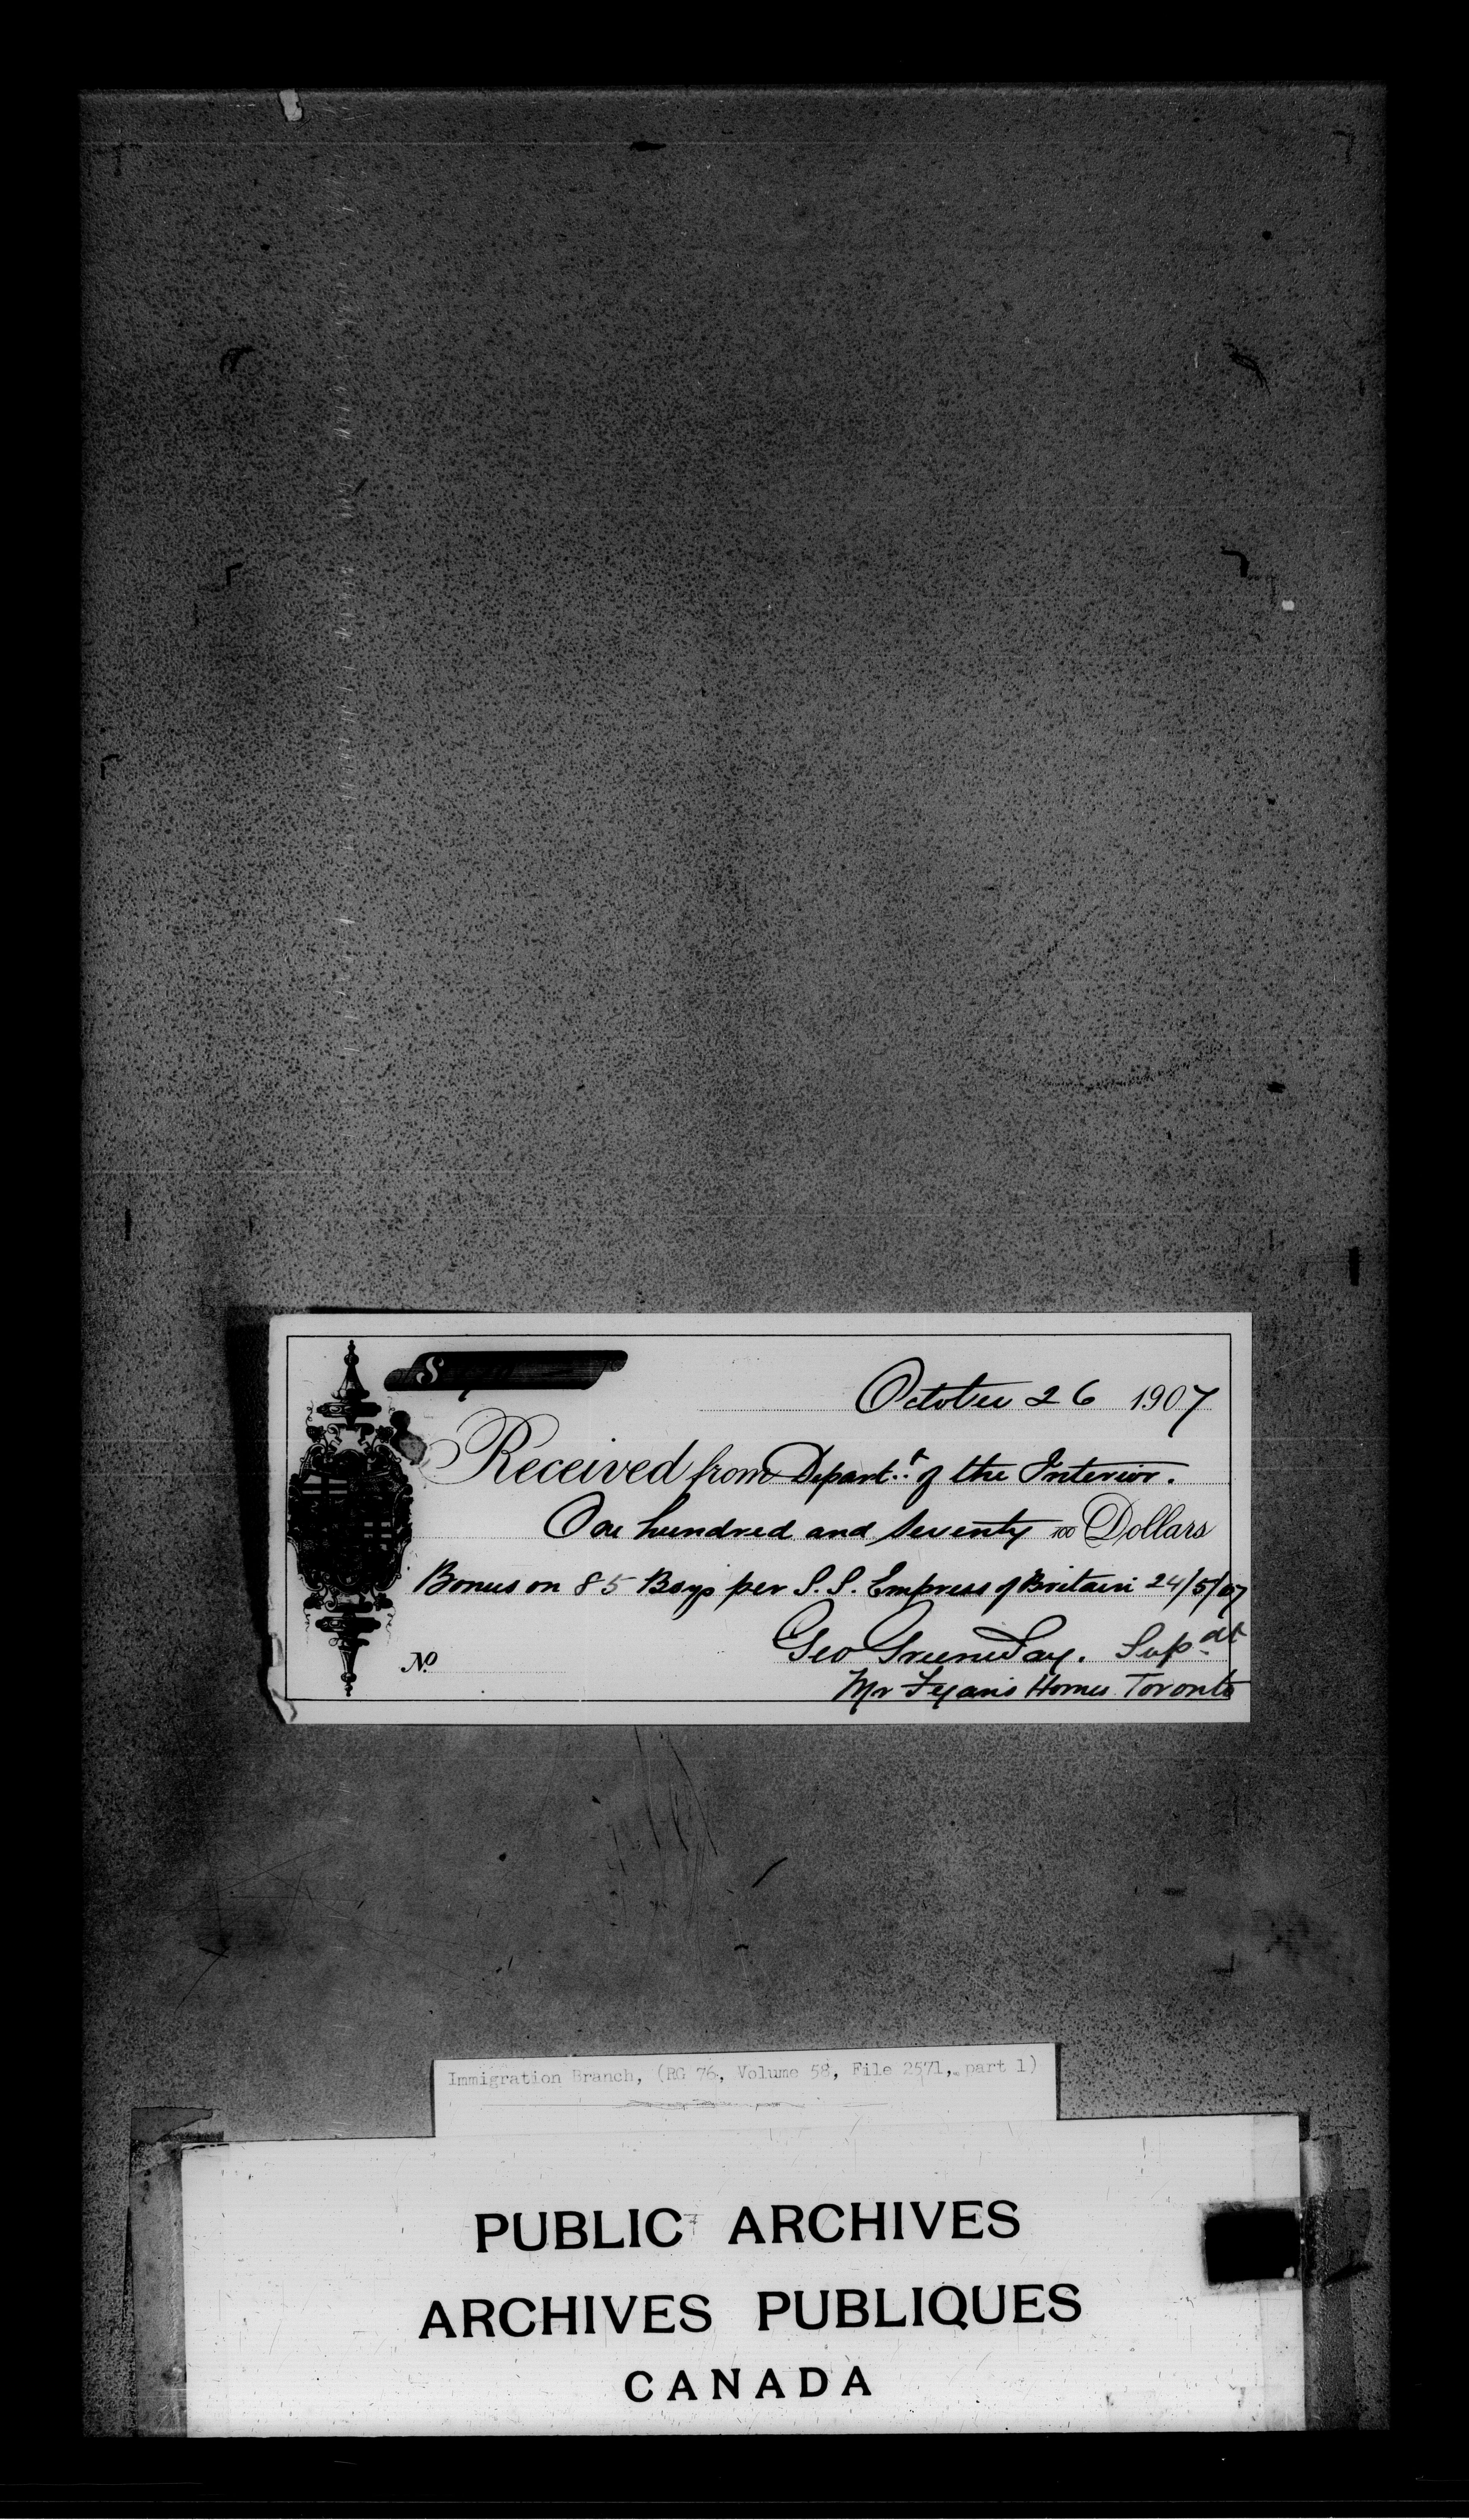 $
October 26 1907
Received from Depart.t of the Interior.
One hundred and seventy 100 Dollars
Bonus on 85 Boys per S.S. Empress of Britain 24/5/07
Geo Greenway. Supdt
No Mr Fegan's Homes Toronto
Immigration Branch, (RG 76, Volume 58, File 2571, part 1)
PUBLIC ARCHIVES
ARCHIVES PUBLIQUES
CANADA